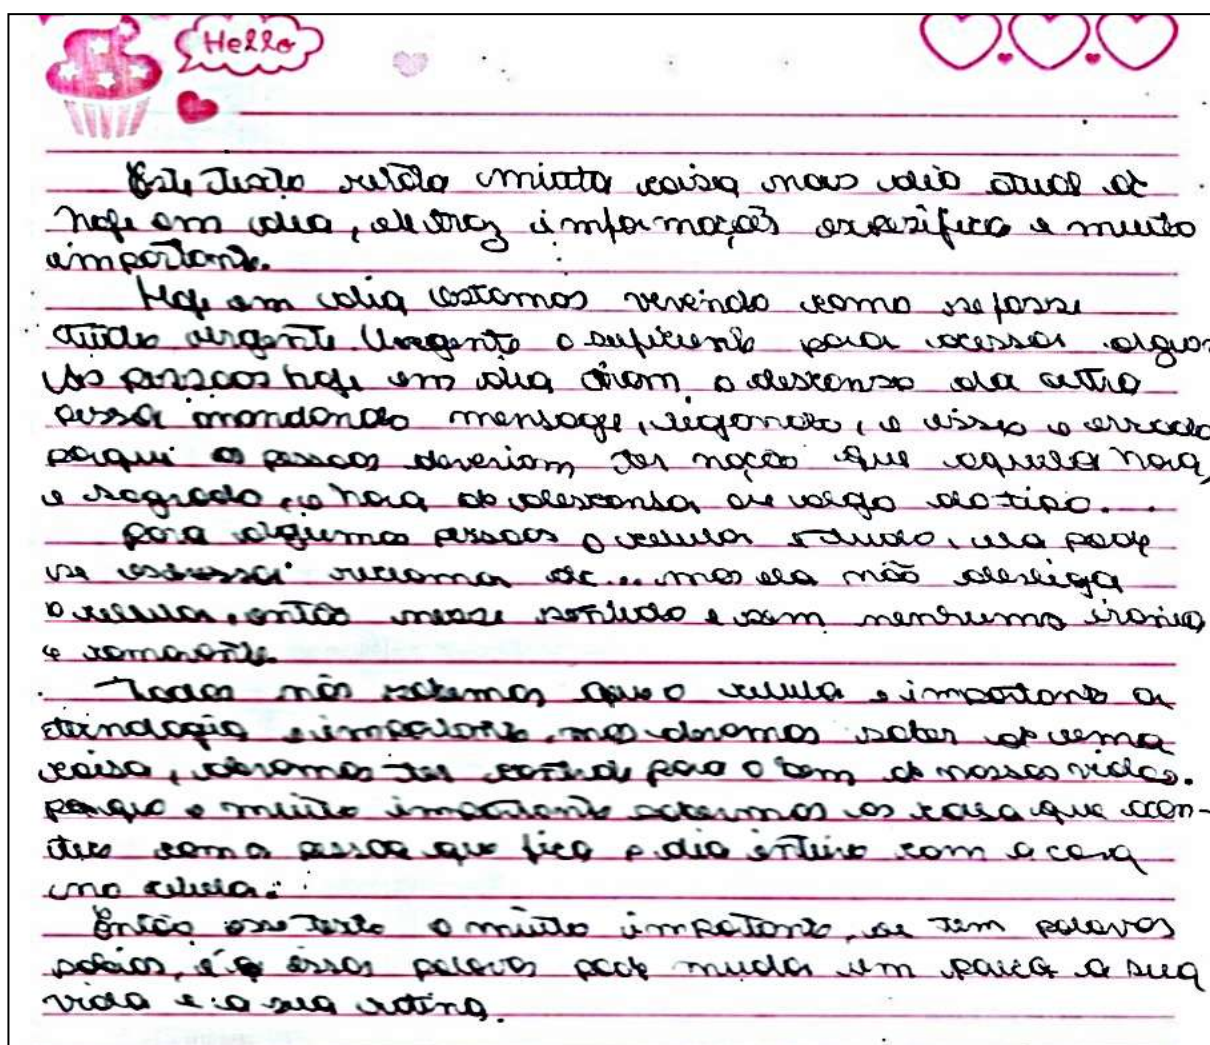 Hello
Este texto relata muita coisa nas dia atual de
hoje em dia, ele traz informações expesifica e muito
importante.
Hoje em dia estamos vivendo como se fosse
tudo urgente. Urgente o suficiente para
As pessoas hoje em dia tiram o descanso da outra
pessoa mandando mensage, ligando, e isso e errado
porque as pessoas deveriam ter noção que aquela hora,
e sagrado, e hora de descansa, ou algo do tipo...
para algumas pessoas o celular e tudo, ela pode
se reclama etc... mas ela não desliga
o celular, então nesse sentido e sem nenhuma ironia
e
Todos nós sabemos que o celula e importante a
e importante, mas devemos saber de uma
coisa, devemos ter controle para o bem de nossas vidas.
porque e muito importante sabermos as coisa que acon-
tece com a pessoa que fica o dia inteiro com a cara
no celula.
Então esse texto e muito impotante, se tem palavas
sabias, e essas palavas pode muda um pouco a sua
vida e a sua rotina.